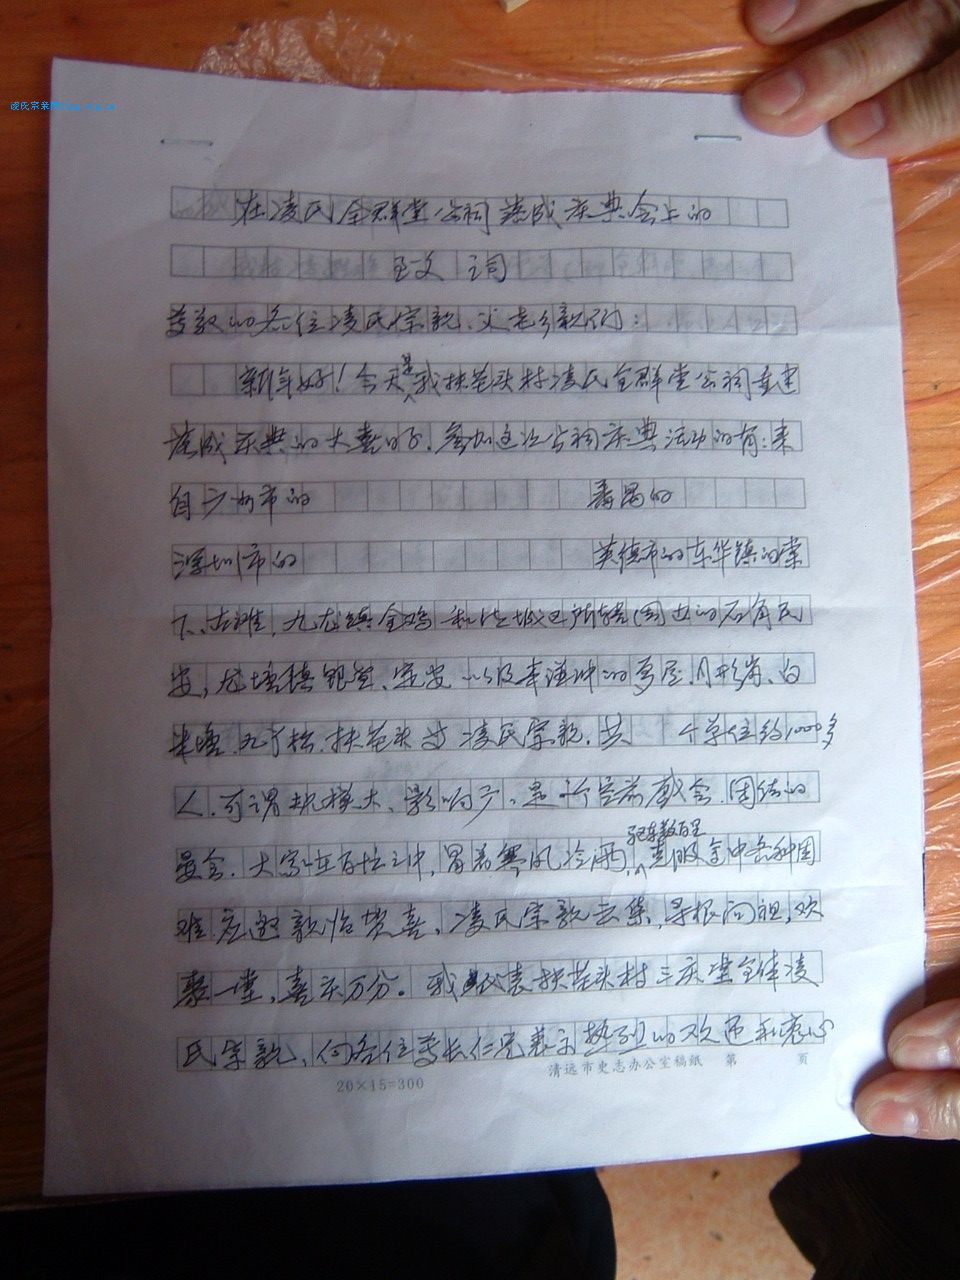 在凌氏全群堂公祠落成庆典会上的
致词
尊敬的各位凌氏宗亲、父老乡亲们:
新年好!今天是我扶芒头村凌氏全群堂公祠重建
落成庆典的大喜日子.参加这次公祠庆典活动的有:来
自广州市的 番禺的
深圳市的 英德市的东华镇的黄
九龙镇金鸡和清城区所辖(周边的石角民
安,龙塘镇银盏、定安以及 的 屋、月形岗、白
米塘、九 松、扶芒头等凌氏宗亲.共 个单位约1000多
人.可谓规模大、影响广、是个空前盛会.团结的
宴会.大家在百忙之中,冒着寒风冷雨,驱车数百里,克服途中各种困
难应邀亲临贺喜,凌氏宗亲云集,寻根问祖,欢
聚一堂,喜庆万分。我代表扶芒头村三庆堂全体凌
氏宗亲、向各位尊长仁兄表示热烈的欢迎和衷心
20×15=300
清远市史志办公室稿纸 第 页